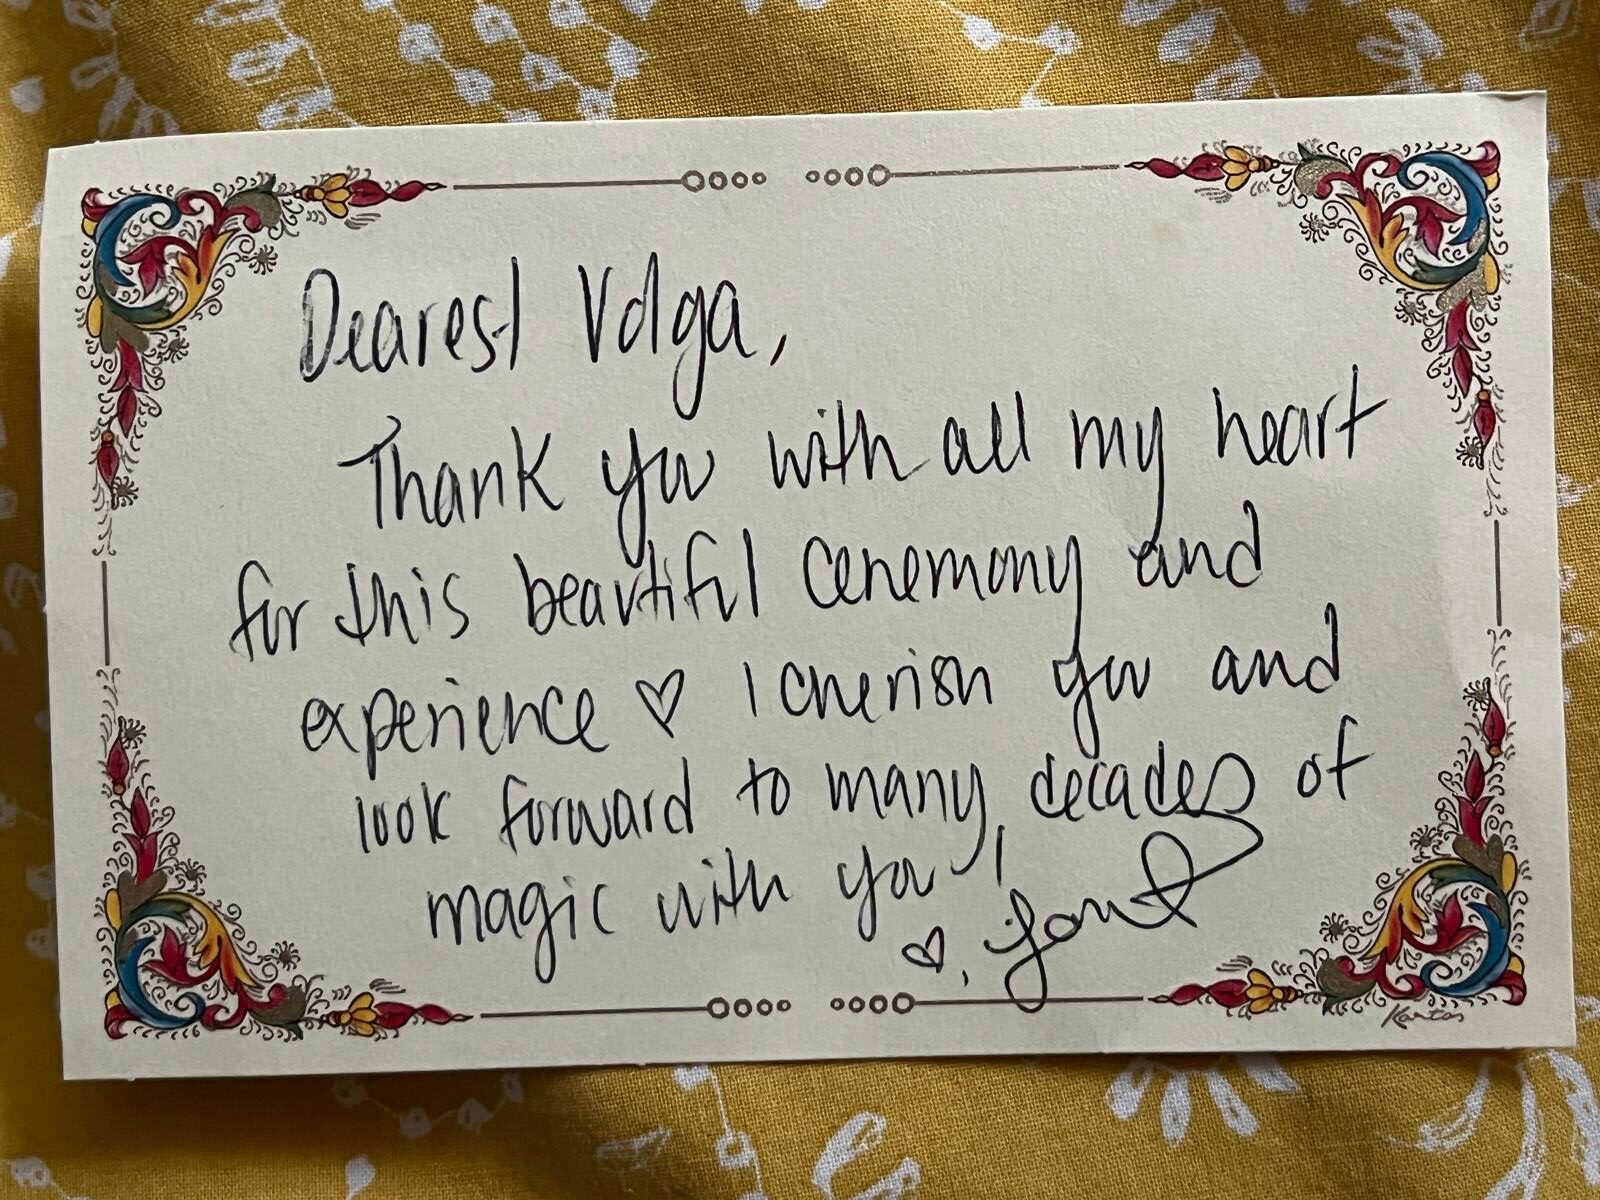 Dearest Volga,
Thank you with all my heart
for this beautiful ceremony and
experience ♡ I cherish you and
look forward to many decades of
magic with you,
♡,